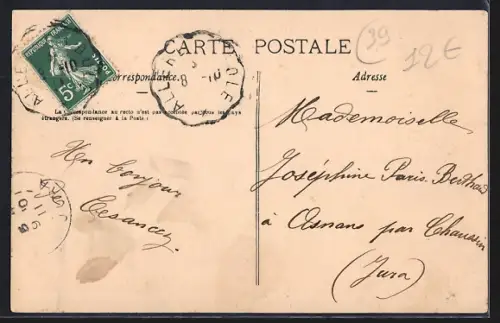 CARTE POSTALE
39
12€
Correspondance.
Adresse
REPUBLIQUE FRANÇAISE
5c
POSTES
8 -10
La Correspondance au recto n'est pas acceptée par tous les pays
étrangers. (Se renseigner à la Poste.)
Mademoiselle
Un bonjour
Joséphine Paris-Berthod
à Asnans par Chaussin
(Jura)